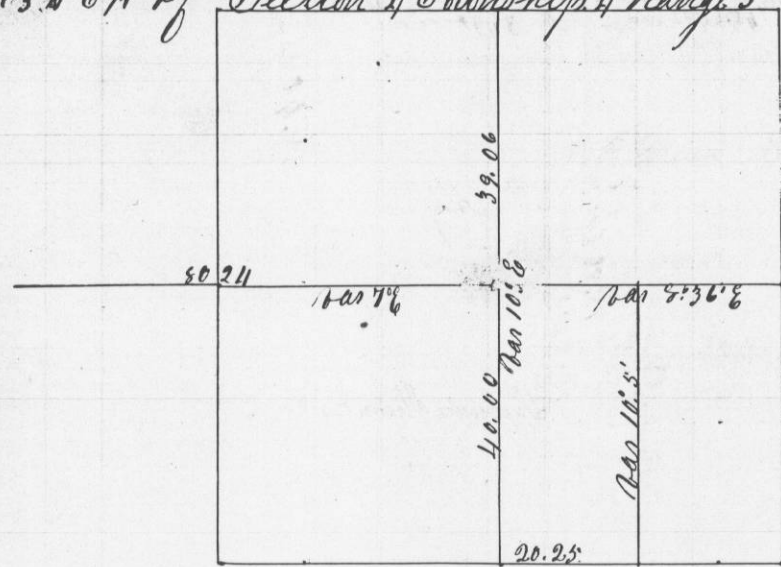 of Section 4 Township 4 Range 5
39.06
80 24
Var 7°E
Var 10° E
Var 8°36'E
40.00
Var 10° 5'
20.25